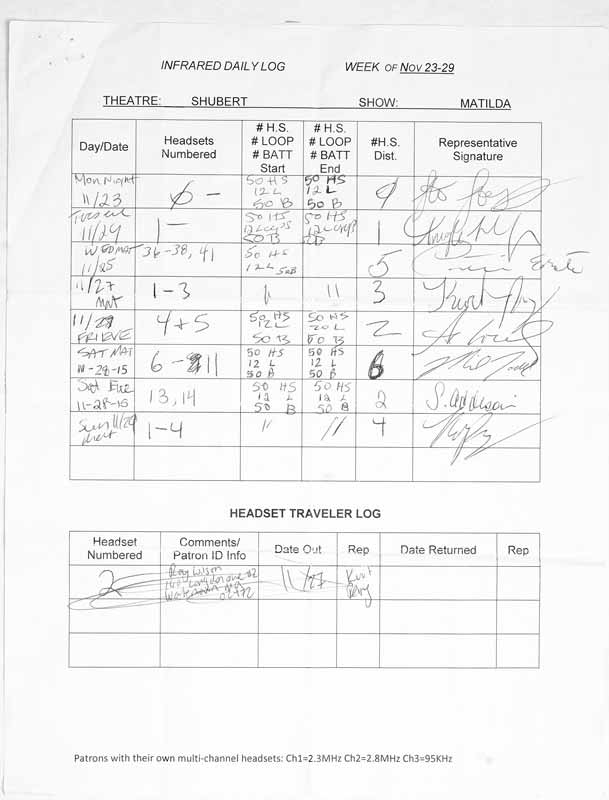 INFRARED DAILY LOG WEEK OF NOV 23-29
THEATRE: SHUBERT SHOW: MATILDA
Day/Date
Headsets
Numbered
# H.S.
# LOOP
# BATT
Start
# H.S.
# LOOP
# BATT
End
#H.S.
Dist.
Representative
Signature
Mon Night
11/23
0 -
50 HS
12 L
50 B
50 HS
12 L
50 B
0
Tues eve
11/24
1 -
50 HS
50 B
50 HS
50B
1
WED MAT
11/25
36-38, 41
50 HS
12 L 50B
5
11/27
MAT
1-3
11
3
FRI EVE
4+5
50 HS
12 L
50 B
50 HS
50 B
2
SAT MAT
11-28-15
6 - 11
50 HS
12 L
50 B
50 HS
12 L
50 B
6
Sat Eve
11-28-15
13, 14
50 HS
12 L
50 B
50 HS
12 L
50 B
2
S. Addison
Sun 11/29
1-4
"
"
4
HEADSET TRAVELER LOG
Headset
Numbered
Comments/
Patron ID Info
Date Out
Rep
Date Returned
Rep
2
11/27
Kurt
02472
Patrons with their own multi-channel headsets: Ch1=2.3MHz Ch2=2.8MHz Ch3=95KHz